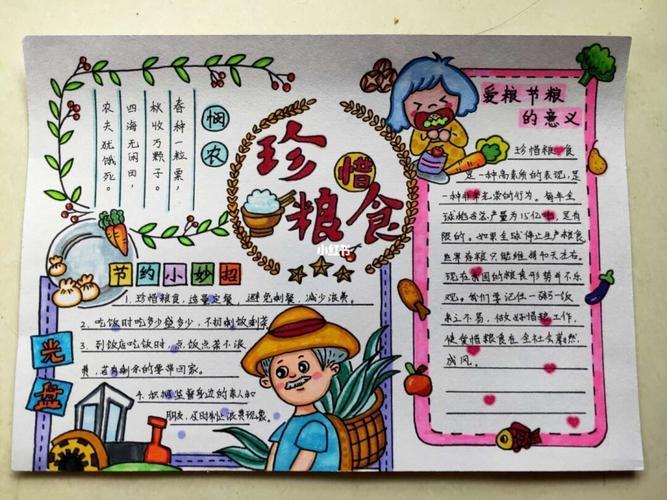 悯农
春种一粒粟，
秋收万颗子。
四海无闲田，
农夫犹饿死。
珍惜粮食
小红书
节约小妙招
1. 珍惜粮食，适量定餐，避免剩餐，减少浪费。
2、吃饭时吃多少盛多少，不扔剩饭剩菜
3、到饭店吃饭时，点饭点菜不浪
费，若有剩余的要带回家。
4、积极监督身边的亲人和
朋友，及时制止浪费现象。
光盘
爱粮节粮
的意义
珍惜粮食
是一种高素质的表现，是
一种非常光荣的行为。每年全
球粮食总产量为15亿吨，是有
限的。如果全球停止生产粮食
世界存粮只能维持40天左右。
现在我国的粮食形势并不乐
观，我们要记住一粥一饭
来之不易，做好惜粮工作，
使爱惜粮食在全社会蔚然
成风。